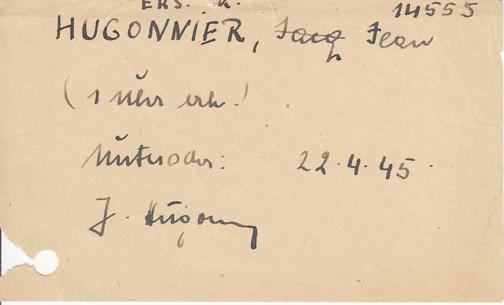 ERS. K. 14555
HUGONNIER, Jacq Jean
(1 Uhr erh.!
Unterschr: 22.4.45.
J. Hugonn